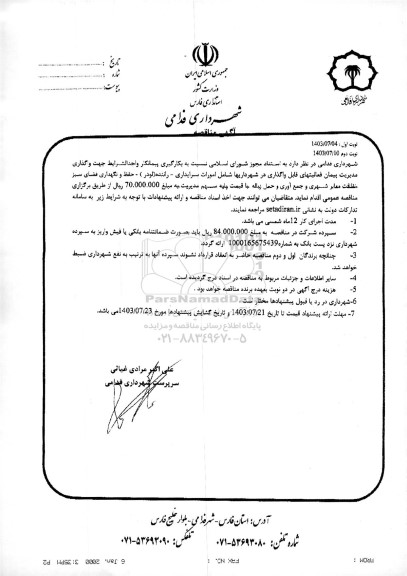 جمهوری اسلامی ایران
وزارت کشور
استانداری فارس
شهرداری فدامی
تاریخ :
شماره :
پیوست:
آگهی مناقصه
نوبت اول: 1403/07/04
نوبت دوم 1403/07/10
شهرداری فدامی در نظر دارد به استناد مجوز شورای اسلامی نسبت به بکارگیری پیمانکار واجدالشرایط جهت واگذاری
مدیریت پیمان فعالیتهای قابل واگذاری در شهرداریها شامل امورات سرایداری - راننده(لودر ) - حفظ و نگهداری فضای سبز
نظافت معابر شهری و جمع آوری و حمل زباله با قیمت پایه سهم مدیریت به مبلغ 70.000.000 ریال از طریق برگزاری
مناقصه عمومی اقدام نماید. متقاضیان می توانند جهت اخذ اسناد مناقصه و ارائه پیشنهادات با توجه به شرایط زیر به سامانه
تدارکات دولت به نشانی setadiran.ir مراجعه نمایند.
1- مدت اجرای کار 12ماه شمسی می باشد.
2- سپرده شرکت در مناقصه به مبلغ 84.000.000 ریال باید بصورت ضمانتنامه بانکی یا فیش واریز به سپرده
شهرداری نزد پست بانک به شماره1000165675439 ارائه گردد.
3- چنانچه برندگان اول و دوم مناقصه حاضر به انعقاد قرارداد نشوند سپرده آنها به ترتیب به نفع شهرداری ضبط
خواهد شد.
4- سایر اطلاعات و جزئیات مربوط به مناقصه در اسناد درج گردیده است.
5- هزینه درج آگهی در دو نوبت بعهده برنده مناقصه خواهد بود.
6-شهرداری در رد یا قبول پیشنهادها مختار است.
7- مهلت ارائه پیشنهاد قیمت تا تاریخ 1403/07/21 و تاریخ گشایش پیشنهادها مورخ 1403/07/23می باشد.
ParsNamadData
پایگاه اطلاع رسانی مناقصه و مزایده
۰۲۱-۸۸۳۴۹۶۷۰-۵
علی اکبر مرادی غیاثی
سرپرست شهرداری فدامی
آدرس: استان فارس - شهر فدامی - بلوار خلیج فارس
شماره تلفن: ۵۳۶۹۳۰۸۰-۰۷۱ تلفکس: ۵۳۶۹۳۰۹۰-۰۷۱
FROM : FAX NO. : 6 Jan. 2000 3:35PM P2